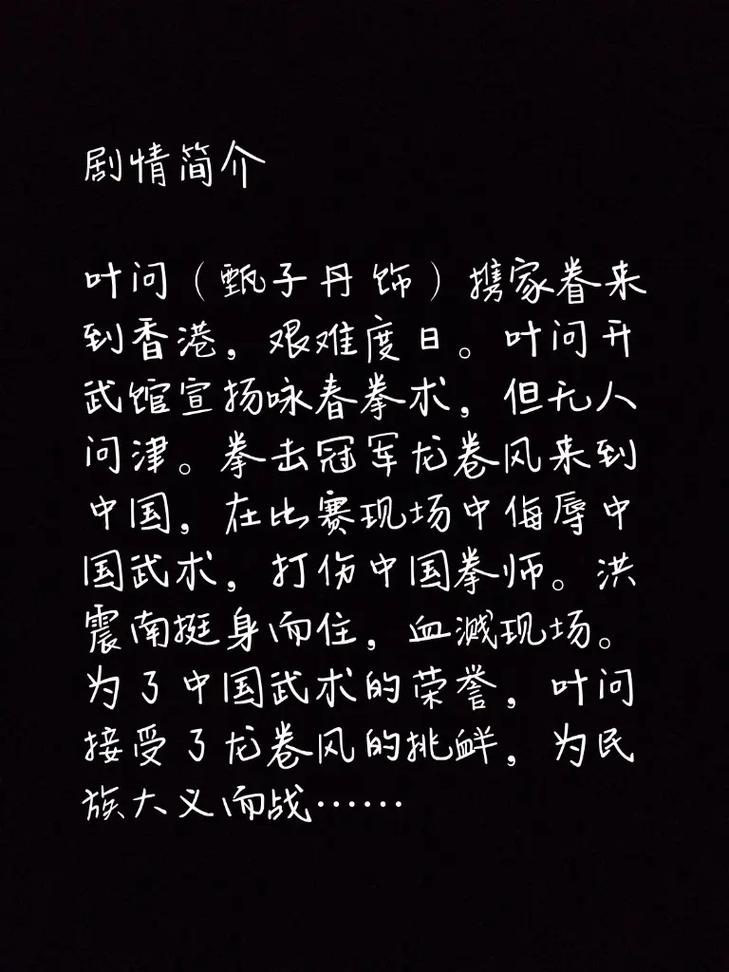 剧情简介
叶问（甄子丹 饰）携家眷来
到香港，艰难度日。叶问开
武馆宣扬咏春拳术，但无人
问津。拳击冠军龙卷风来到
中国，在比赛现场中侮辱中
国武术，打伤中国拳师。洪
震南挺身而住，血溅现场。
为了中国武术的荣誉，叶问
接受了龙卷风的挑衅，为民
族大义而战……